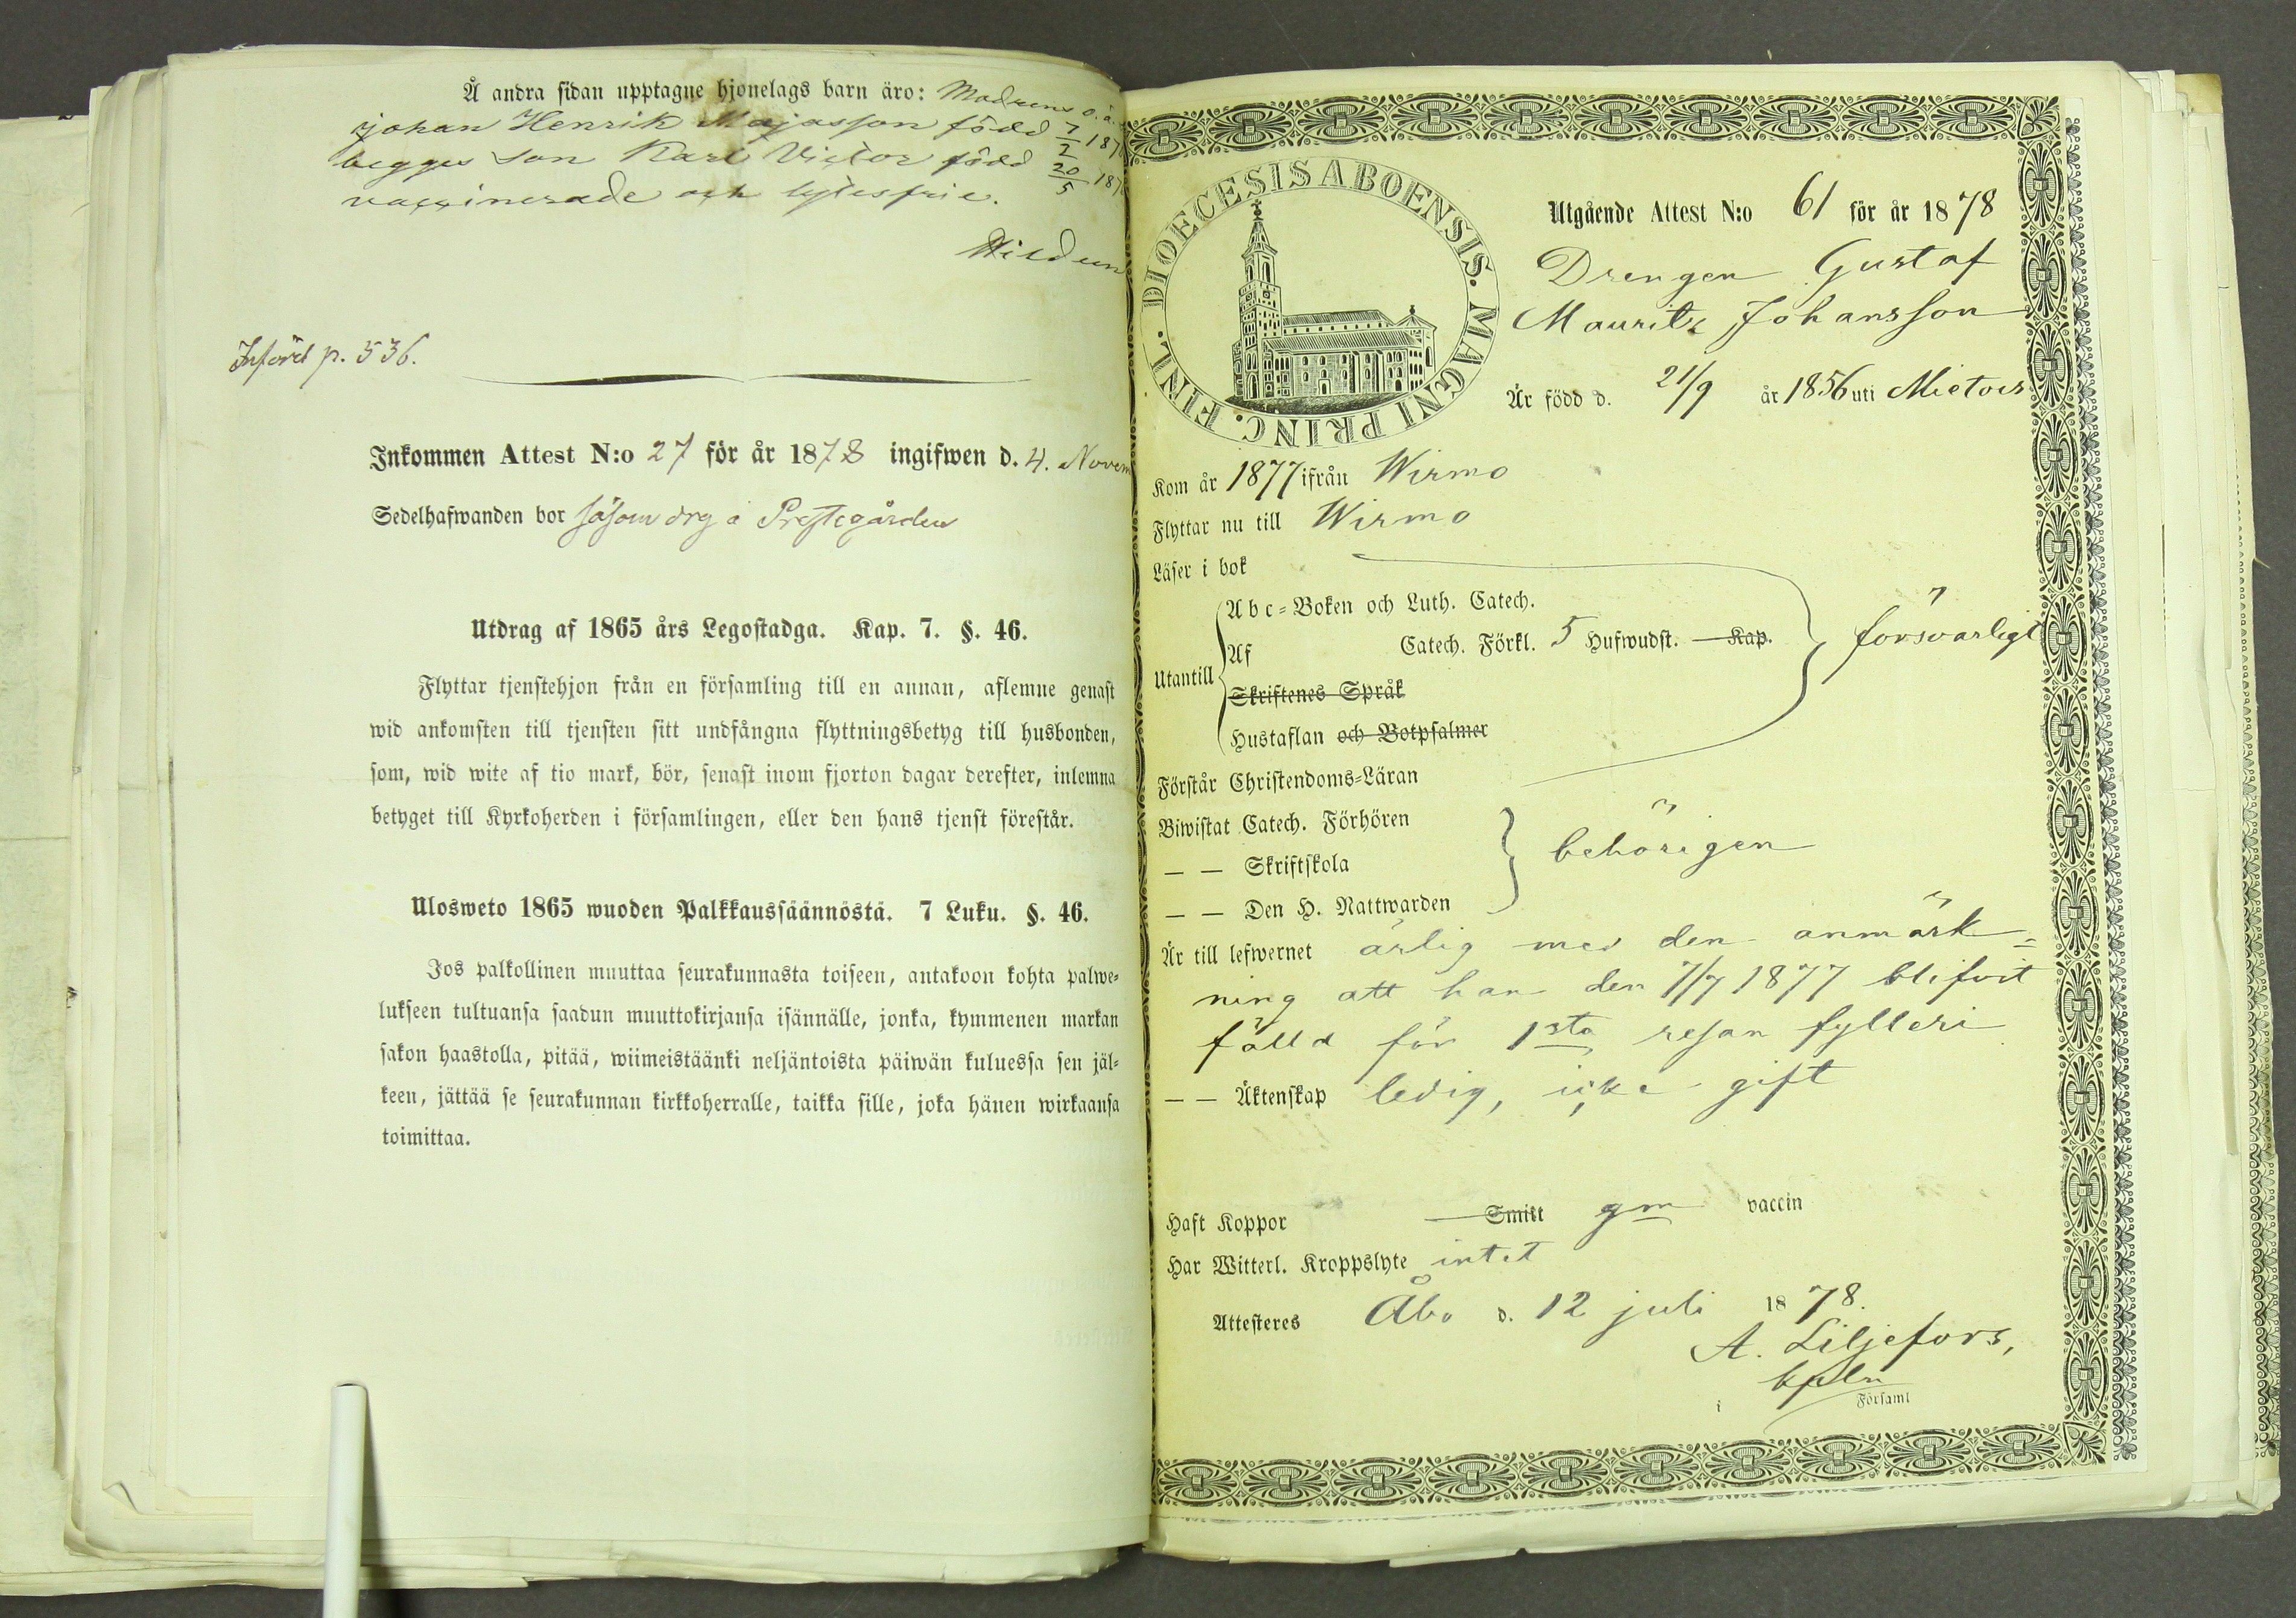 Å andra sidan upptagne hjonelags barn äro: Modrens o. ä.
Johan Henrik Majasson född 7/2 187
begges son Karl Victor född 20/5 187
vaccinerade och lytesfrie.
Införd p. 536.
Inkommen Attest N:o 27 för år 1878 ingifwen d. 4. Novem
Sedelhafwanden bor såsom drg å Prestegården
Utdrag af 1865 års Legostadga. Kap. 7. §. 46.
Flyttar tjenstehjon från en församling till en annan, aflemne genast
wid ankomsten till tjensten sitt undfångna flyttningsbetyg till husbonden,
som, wid wite af tio mark, bör, senast inom fjorton dagar derefter, inlemna
betyget till Kyrkoherden i församlingen, eller den hans tjenst förestår.
Ulosweto 1865 wuoden Palkkaussäännöstä. 7 Luku. §. 46.
Jos palkollinen muuttaa seurakunnasta toiseen, antakoon kohta palwe-
lukseen tultuansa saadun muuttokirjansa isännälle, jonka, kymmenen markan
sakon haastolla, pitää, wiimeistäänki neljäntoista päiwän kuluessa sen jäl-
keen, jättää se seurakunnan kirkkoherralle, taikka sille, joka hänen wirkaansa
toimittaa.
DIOECESIS ABOENSIS. MAGNI PRINC. FINL.
Utgående Attest N:o 61 för år 1878
Drengen Gustaf
Mauritz Johansson
Är född d. 21/9 år 1856 uti Mietois
Kom år 1877 ifrån Wirmo
Flyttar nu till Wirmo
Läser i bok
Utantill
Abc-Boken och Luth. Catech.
Af Catech. Förkl. 5 Hufwudst. Kap. försvarligt
Skriftenes Språk
Hustaflan och Botpsalmer
Förstår Christendoms-Läran
Biwistat Catech. Förhören
— — Skriftskola behörigen
— — Den H. Nattwarden
Är till lefwernet ärlig med den anmärk=
ning att han den 7/7 1877 blifvit
fälld för 1sta resan fylleri
— — Äktenskap ledig, icke gift
Haft Koppor Smitt gm vaccin
Har Witterl. Kroppslyte intet
Attesteres Åbo d. 12 juli 1878.
A. Liljefors,
kpln
i Församl